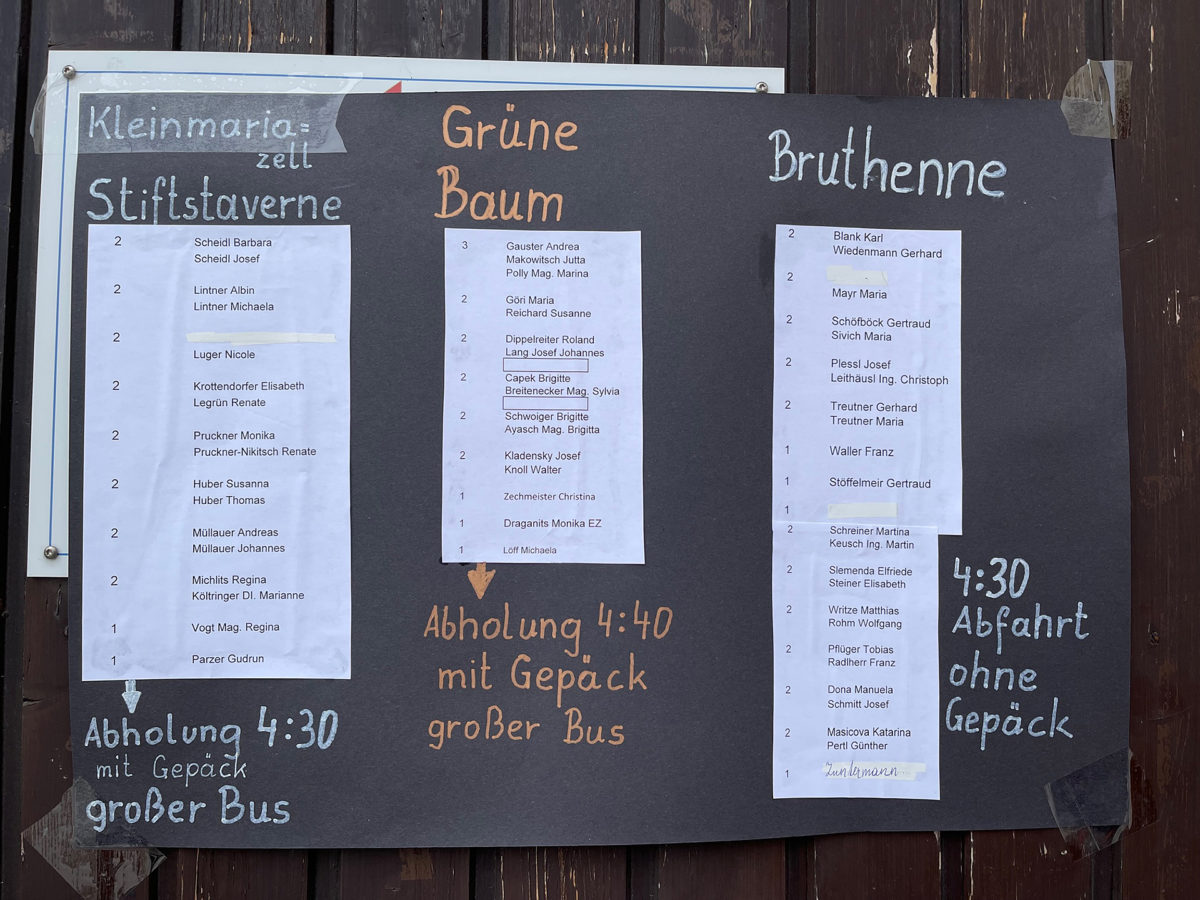 Kleinmaria=
zell
Stiftstaverne
2 Scheidl Barbara
Scheidl Josef
2 Lintner Albin
Lintner Michaela
2
Luger Nicole
2 Krottendorfer Elisabeth
Legrün Renate
2 Pruckner Monika
Pruckner-Nikitsch Renate
2 Huber Susanna
Huber Thomas
2 Müllauer Andreas
Müllauer Johannes
2 Michlits Regina
Költringer DI. Marianne
1 Vogt Mag. Regina
1 Parzer Gudrun
Abholung 4:30
mit Gepäck
großer Bus
Grüne
Baum
3 Gauster Andrea
Makowitsch Jutta
Polly Mag. Marina
2 Göri Maria
Reichard Susanne
2 Dippelreiter Roland
Lang Josef Johannes
2 Capek Brigitte
Breitenecker Mag. Sylvia
2 Schwoiger Brigitte
Ayasch Mag. Brigitta
2 Kladensky Josef
Knoll Walter
1 Zechmeister Christina
1 Draganits Monika EZ
1 Löff Michaela
Abholung 4:40
mit Gepäck
großer Bus
Bruthenne
2 Blank Karl
Wiedenmann Gerhard
2
Mayr Maria
2 Schöfböck Gertraud
Sivich Maria
2 Plessl Josef
Leithäusl Ing. Christoph
2 Treutner Gerhard
Treutner Maria
1 Waller Franz
1 Stöffelmeir Gertraud
1
2 Schreiner Martina
Keusch Ing. Martin
2 Slemenda Elfriede
Steiner Elisabeth
2 Writze Matthias
Rohm Wolfgang
2 Pflüger Tobias
Radlherr Franz
2 Dona Manuela
Schmitt Josef
2 Masicova Katarina
Pertl Günther
1
4:30
Abfahrt
ohne
Gepäck